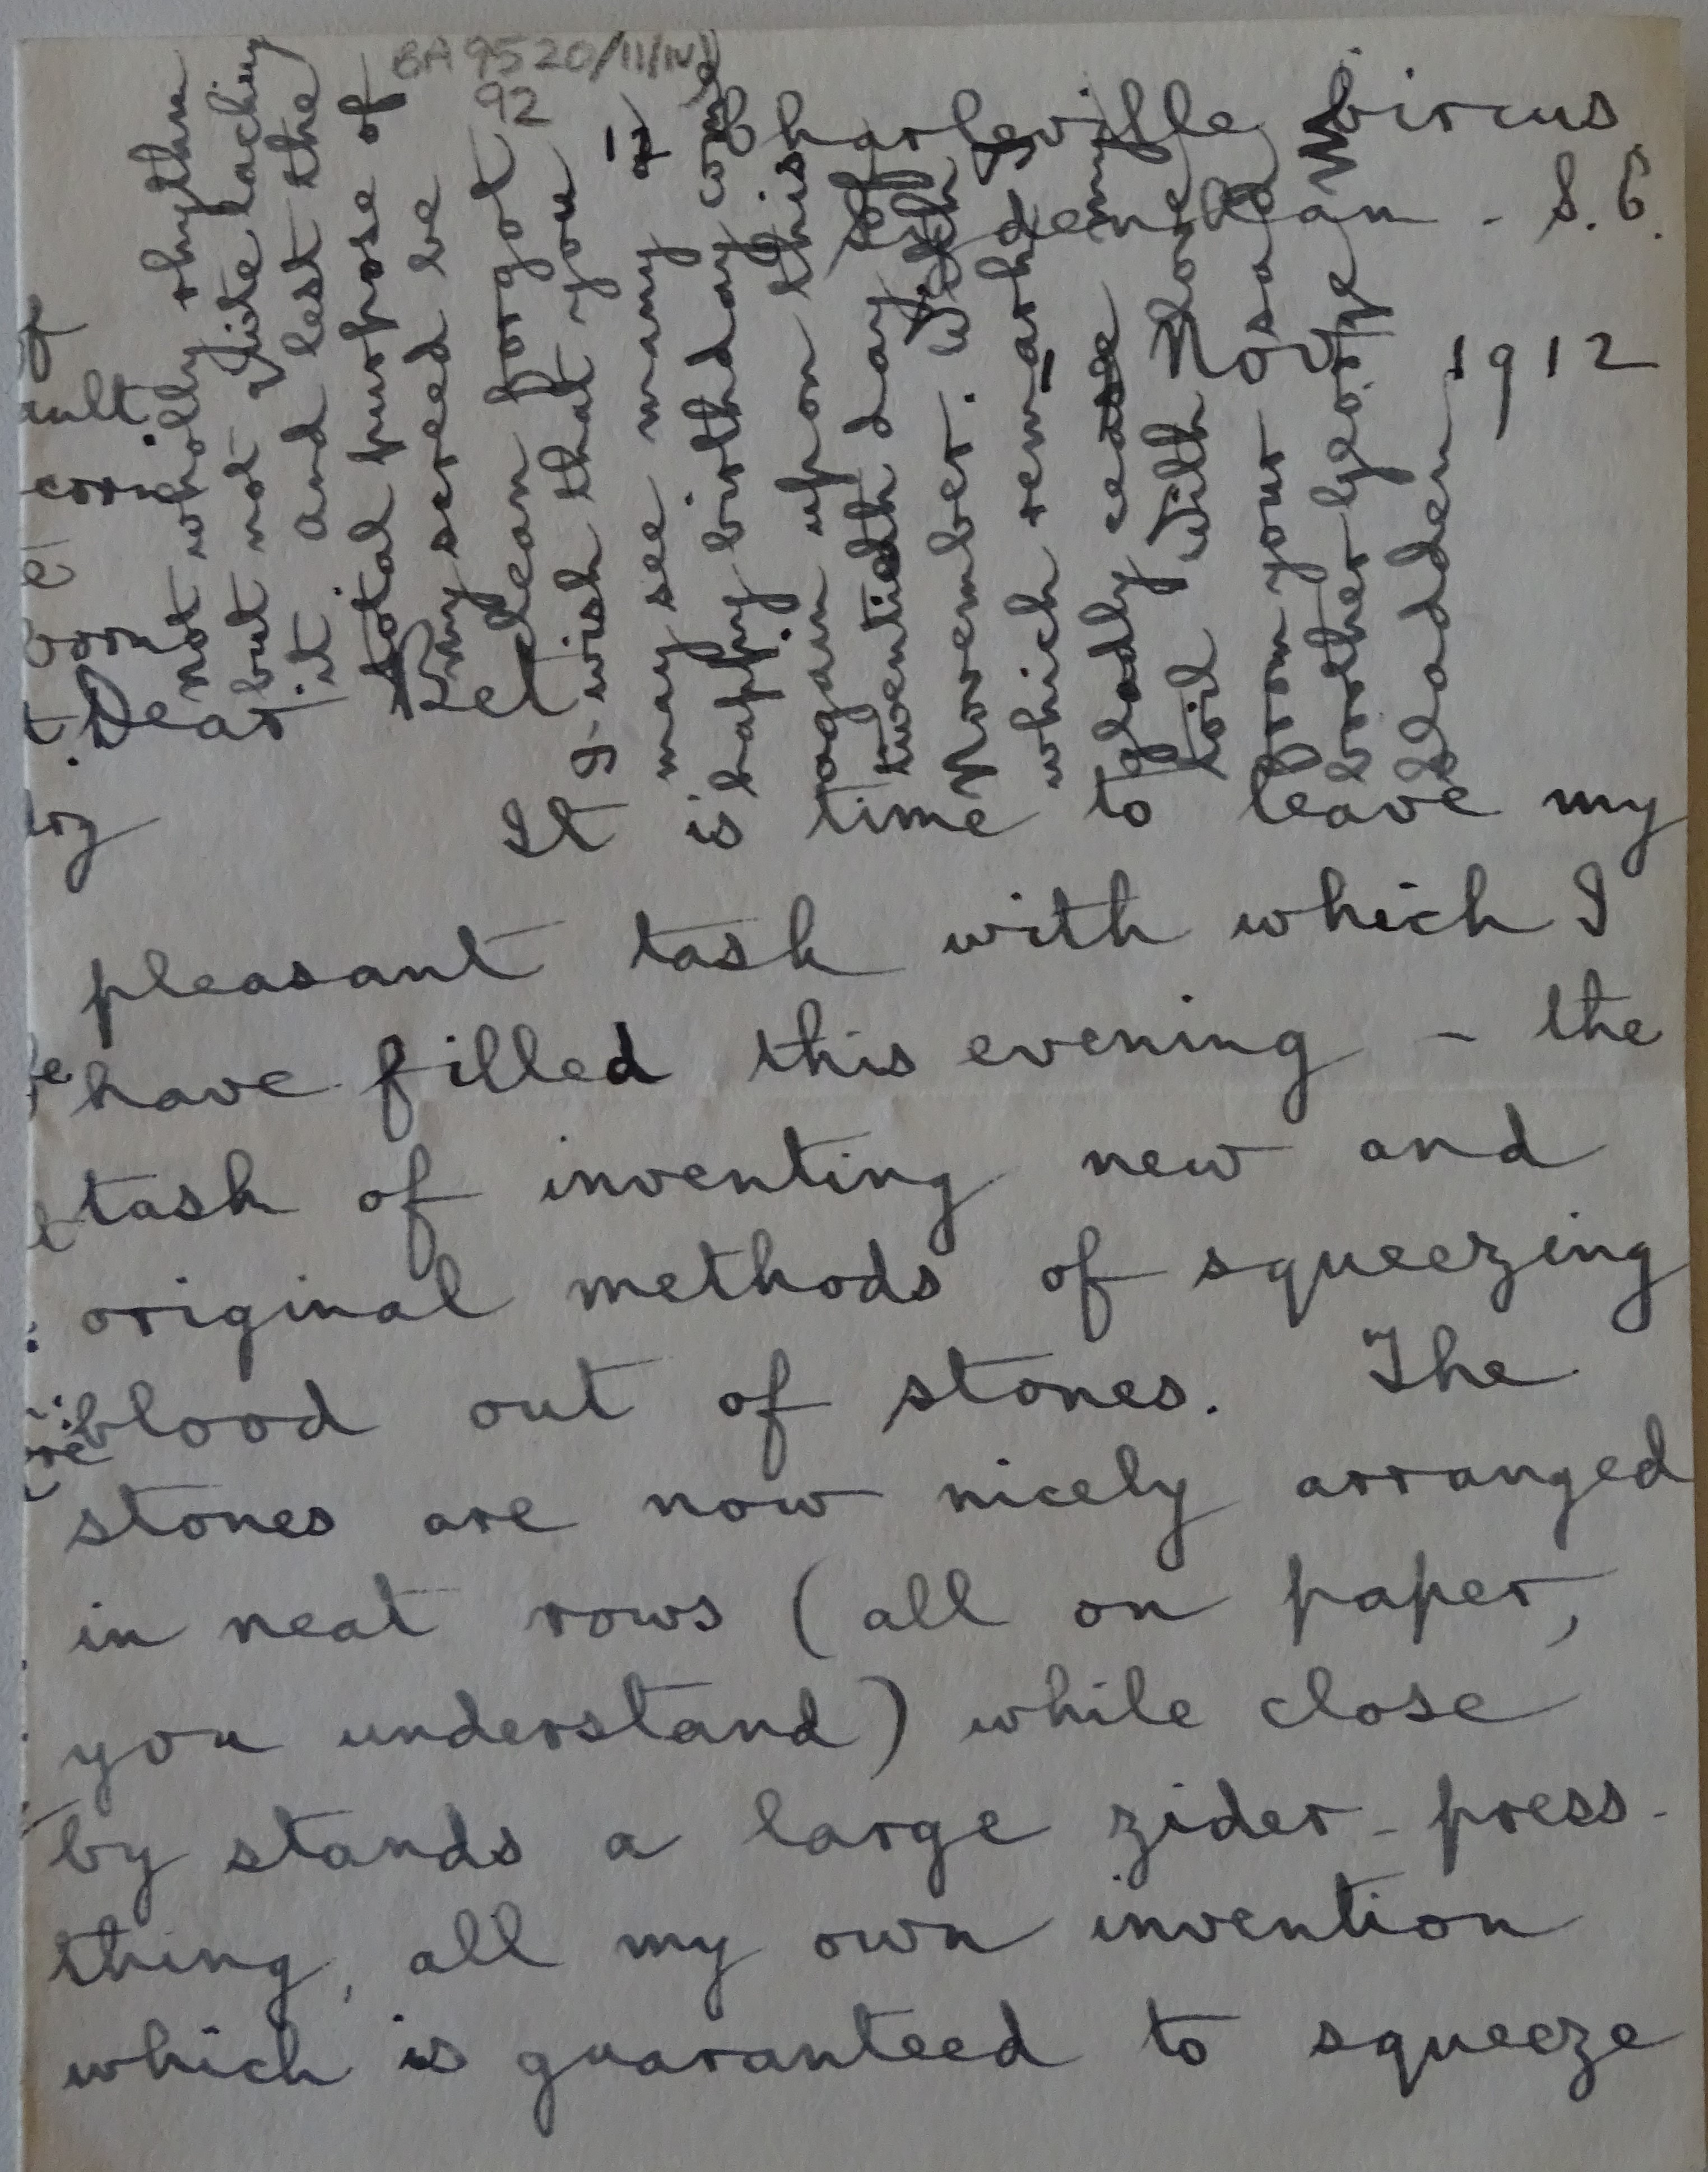 BA 9520/11/iv)
92
Charleville Circus
Sydenham - S.E.
Nov 1912
Dear Kel
It is time to leave my
pleasant task with which I
have filled this evening - the
task of inventing new and
original methods of squeezing
blood out of stones. The
stones are now nicely arranged
in neat rows (all on paper,
you understand) while close
by stands a large zider-press-
thing, all my own invention
which is guaranteed to squeeze
not wholly rhythm
but not quite lacking
it and lest the
total purpose of
my screed be
clean forgot
I wish that you
may see many a
happy birthday come
again upon this
twentieth day of
November. With
which remark I
gladly cease my
toil With love
from your
brother George
Gladden